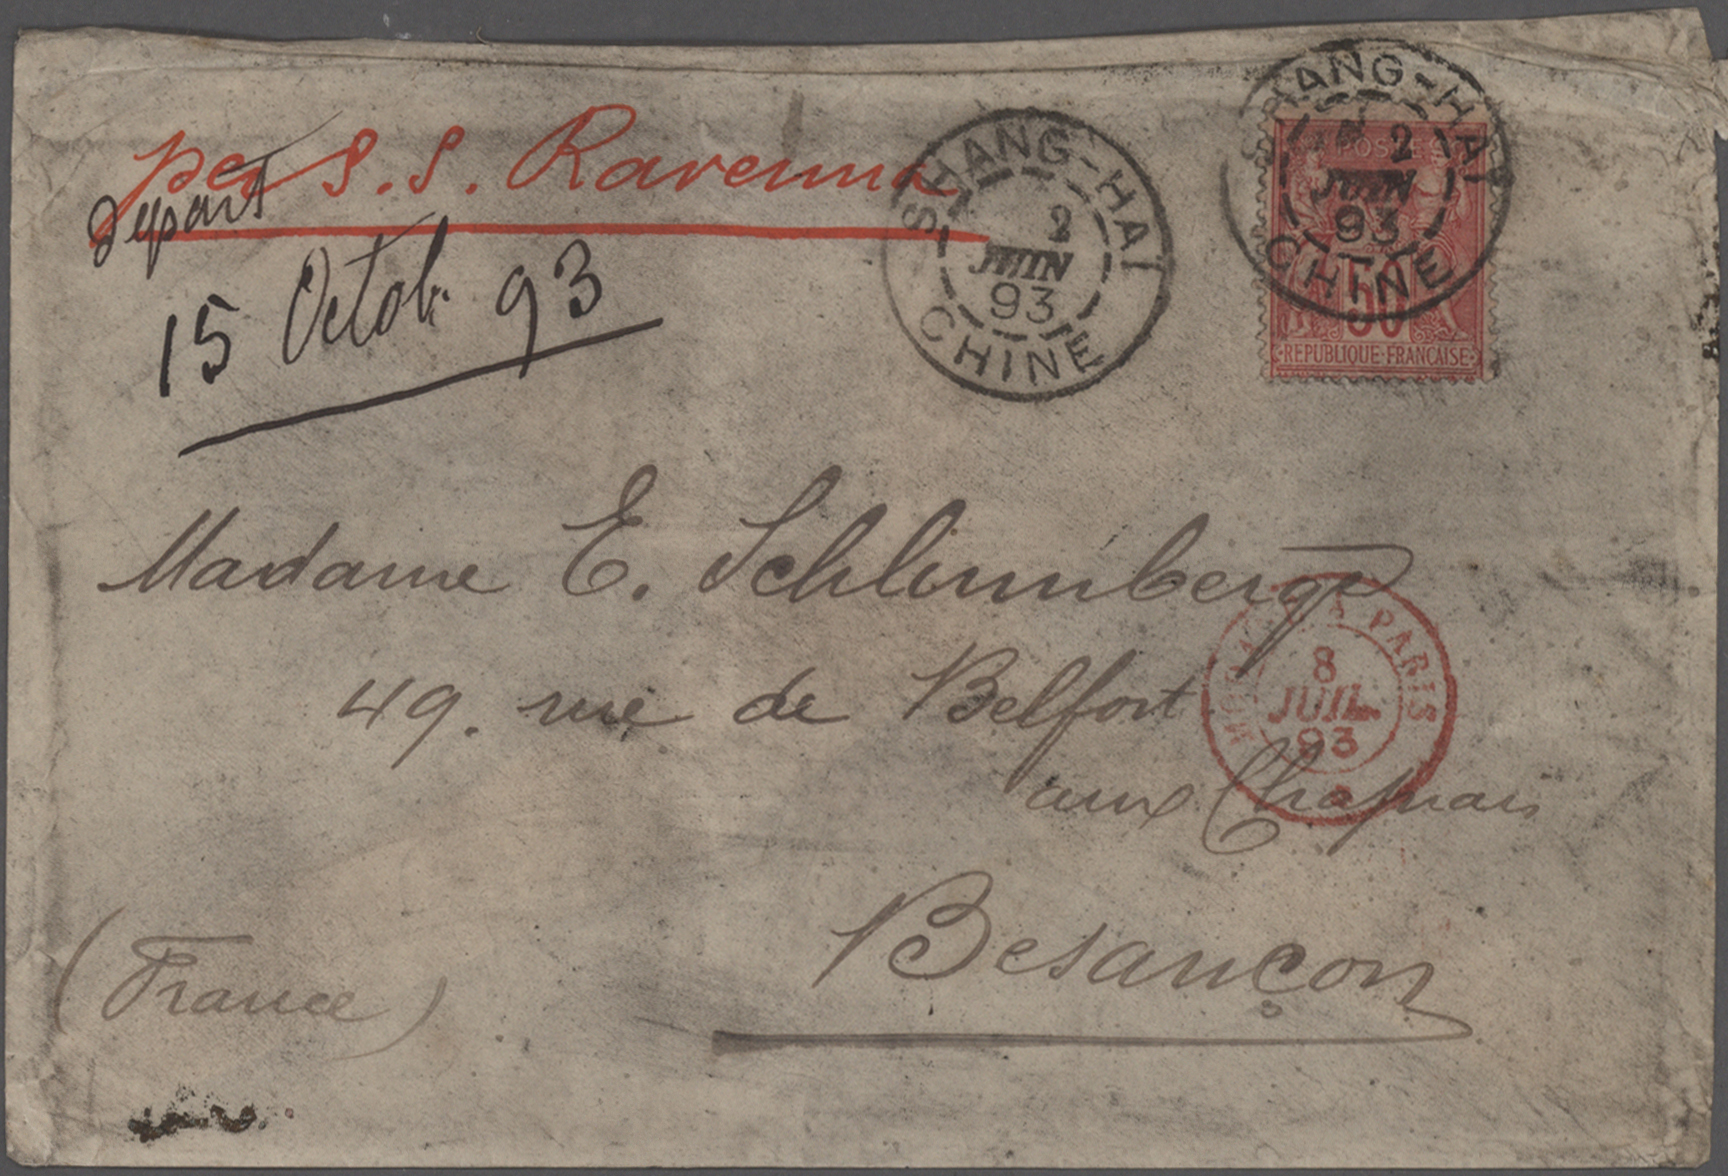 per S.S. Ravenna
départ
15 Octob. 93
SHANG-HAI
2
JUIN
93
CHINE
SHANG-HAI
2
JUIN
93
CHINE
POSTES
50
REPUBLIQUE FRANCAISE
Madame E. Schlumberger
49. rue de Belfort
aux Chaprais
Besançon
(France)
A PARIS
8
JUIL.
93